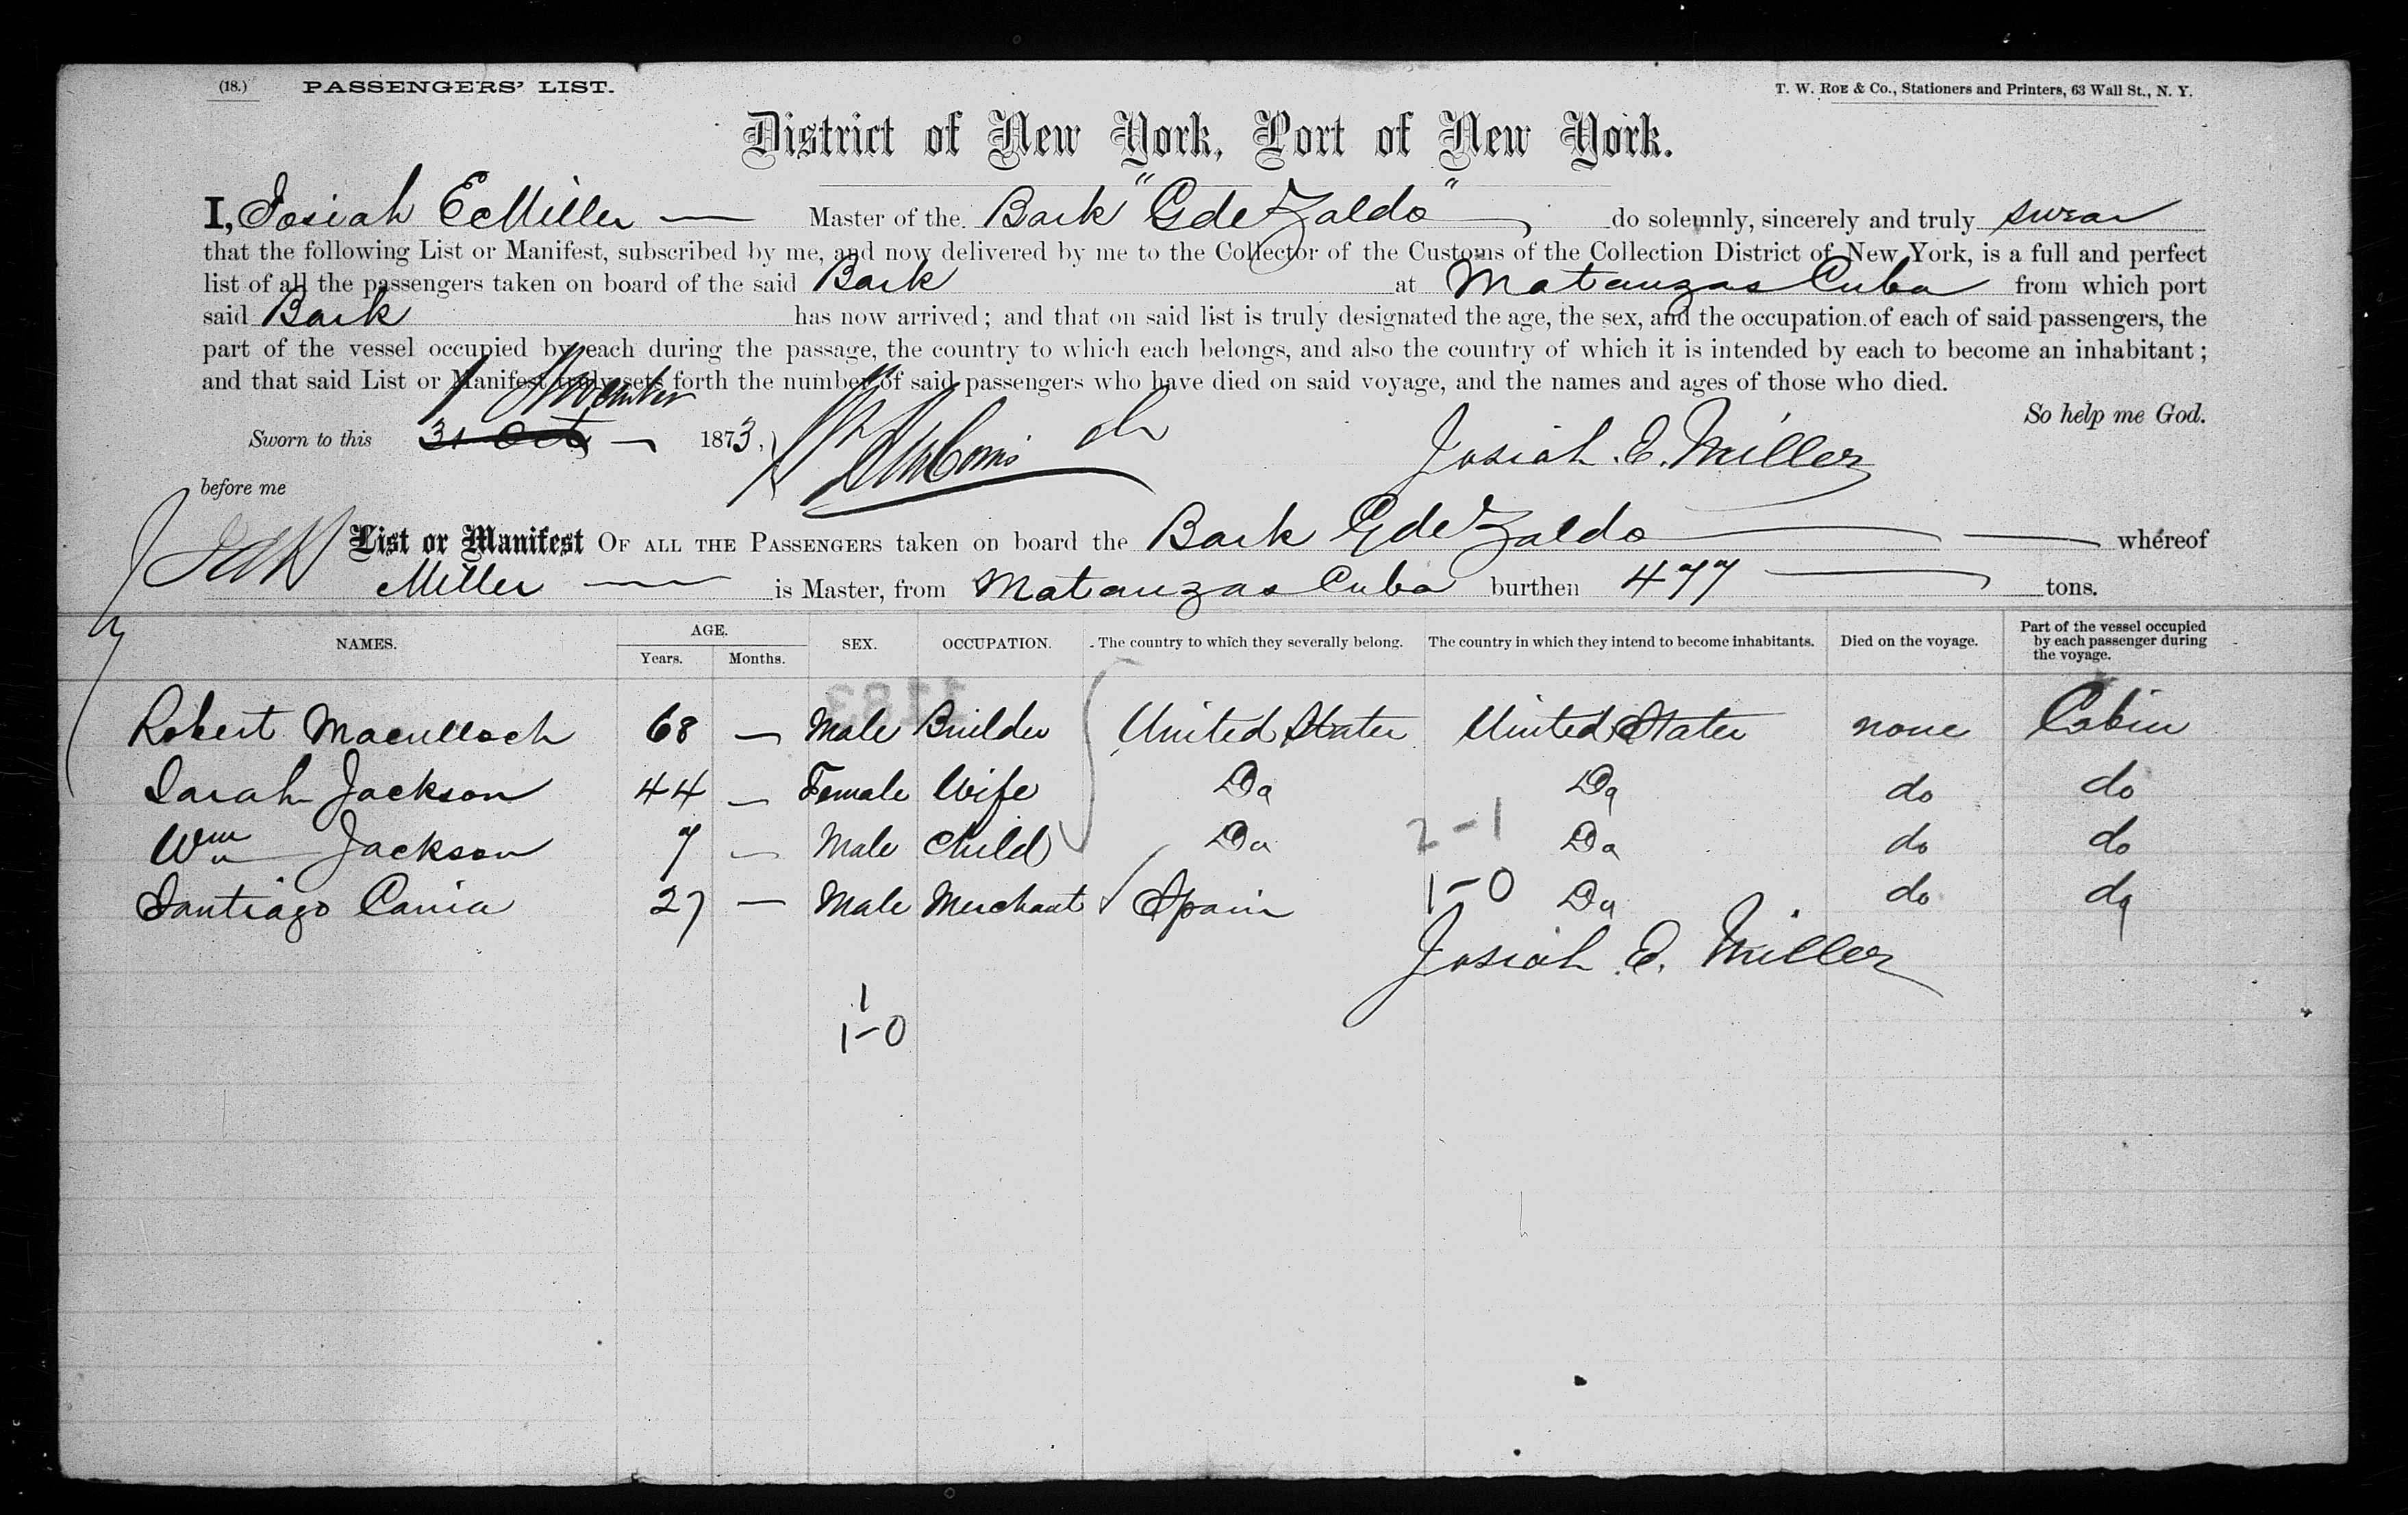 (18.) PASSENGERS' LIST. T. W. ROE & Co., Stationers and Printers, 63 Wall St., N. Y.
District of New York, Port of New York.
I, Josiah E Miller Master of the Bark "G de Zaldo" do solemnly, sincerely and truly swear
that the following List or Manifest, subscribed by me, and now delivered by me to the Collector of the Customs of the Collection District of New York, is a full and perfect
list of all the passengers taken on board of the said Bark at Matanzas Cuba from which port
said Bark has now arrived; and that on said list is truly designated the age, the sex, and the occupation of each of said passengers, the
part of the vessel occupied by each during the passage, the country to which each belongs, and also the country of which it is intended by each to become an inhabitant;
and that said List or Manifest truly sets forth the number of said passengers who have died on said voyage, and the names and ages of those who died.
So help me God.
1 November
Sworn to this 31 Oct 1873, Josiah. E. Miller
before me
List or Manifest OF ALL THE PASSENGERS taken on board the Bark G de Zaldo whereof
Miller is Master, from Matanzas Cuba burthen 477 tons.
NAMES. AGE. Years. Months. SEX. OCCUPATION. The country to which they severally belong. The country in which they intend to become inhabitants. Died on the voyage. Part of the vessel occupied by each passenger during the voyage.
1183
Robert Maculloch 68 — Male Builder United States United States none Cabin
Sarah Jackson 44 — Female Wife Do Do do do
Wm Jackson 7 — Male Child Do 2-1 Do do do
Santiago Cania 27 — Male Merchant Spain 1-0 Do do do
Josiah E. Miller
1
1-0